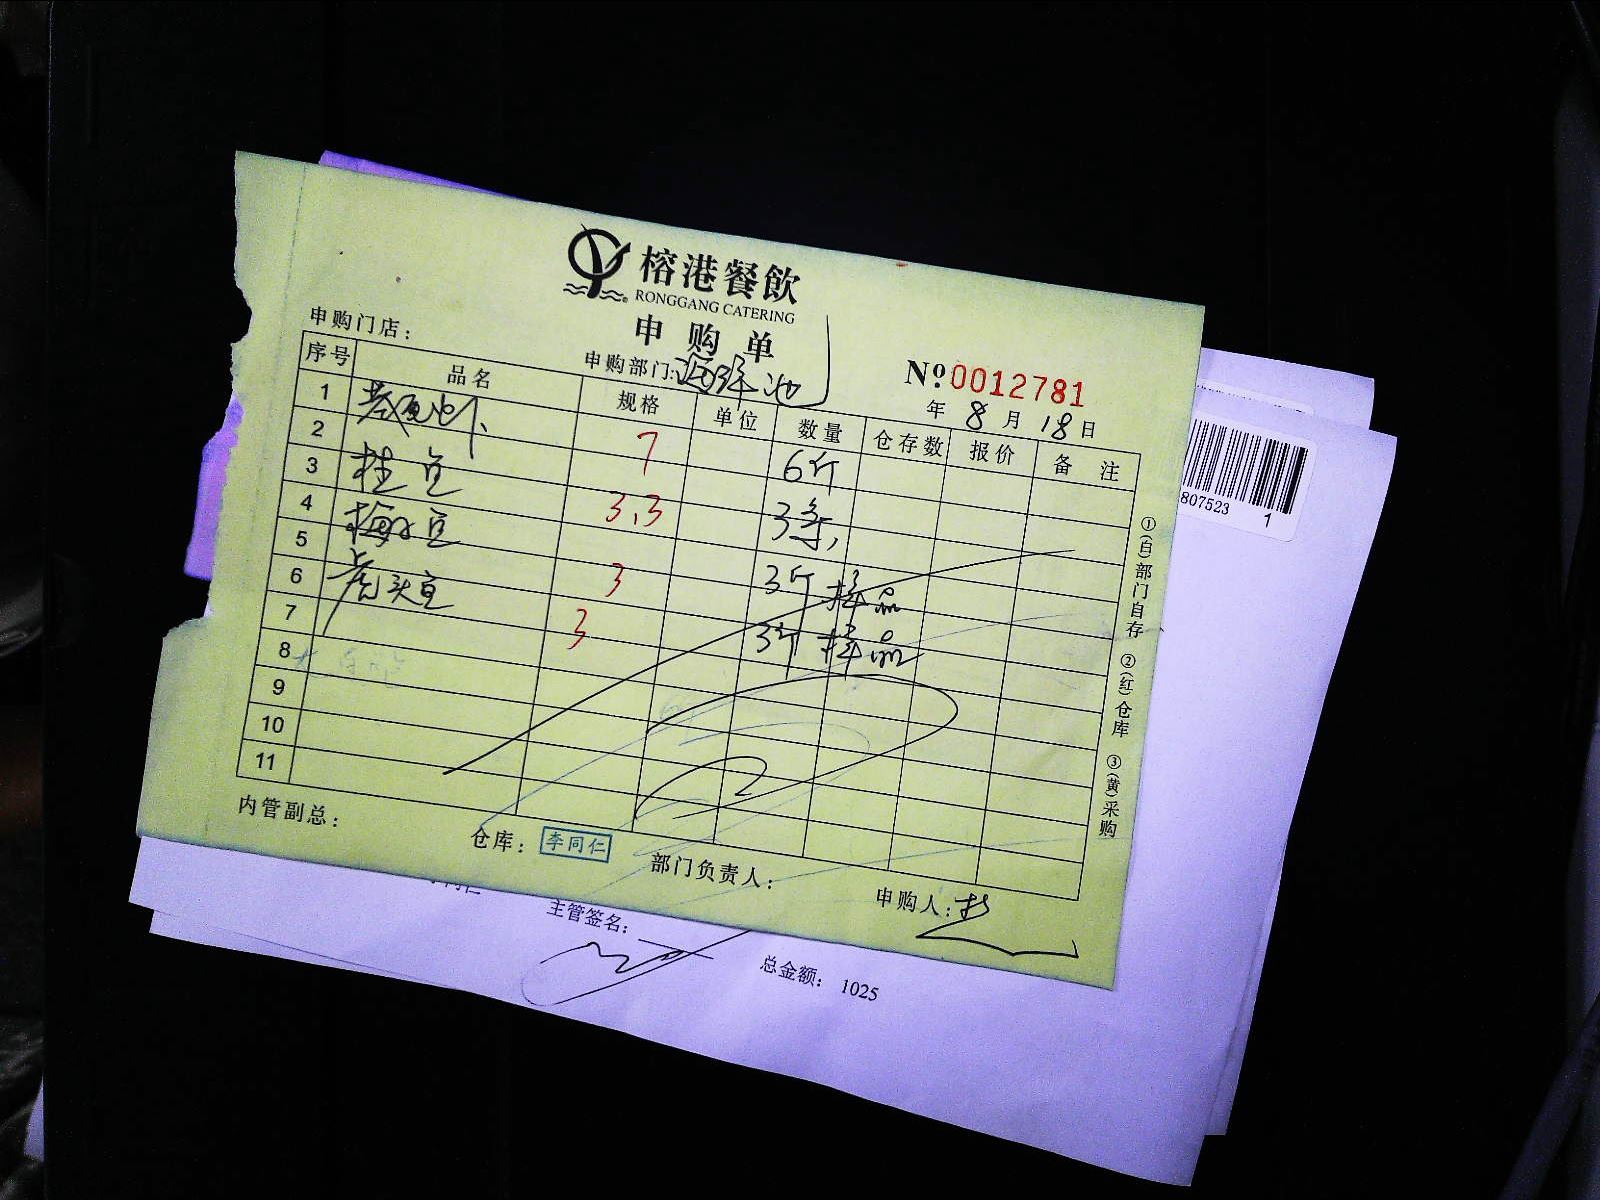 榕港餐飲
RONGGANG CATERING
申购单
申购门店：
申购部门：海鲜池
№0012781
年 8 月 18 日
序号 品名 规格 单位 数量 仓存数 报价 备注
1
7 6斤
2
3 桂鱼 3.3 3条
4
3 3斤 样品
5
6 老头鱼 3 3斤 样品
7
8
9
10
11
①(白)部门自存 ②(红)仓库 ③(黄)采购
内管副总： 仓库：李同仁 部门负责人： 申购人：
主管签名：
总金额： 1025
807523 1